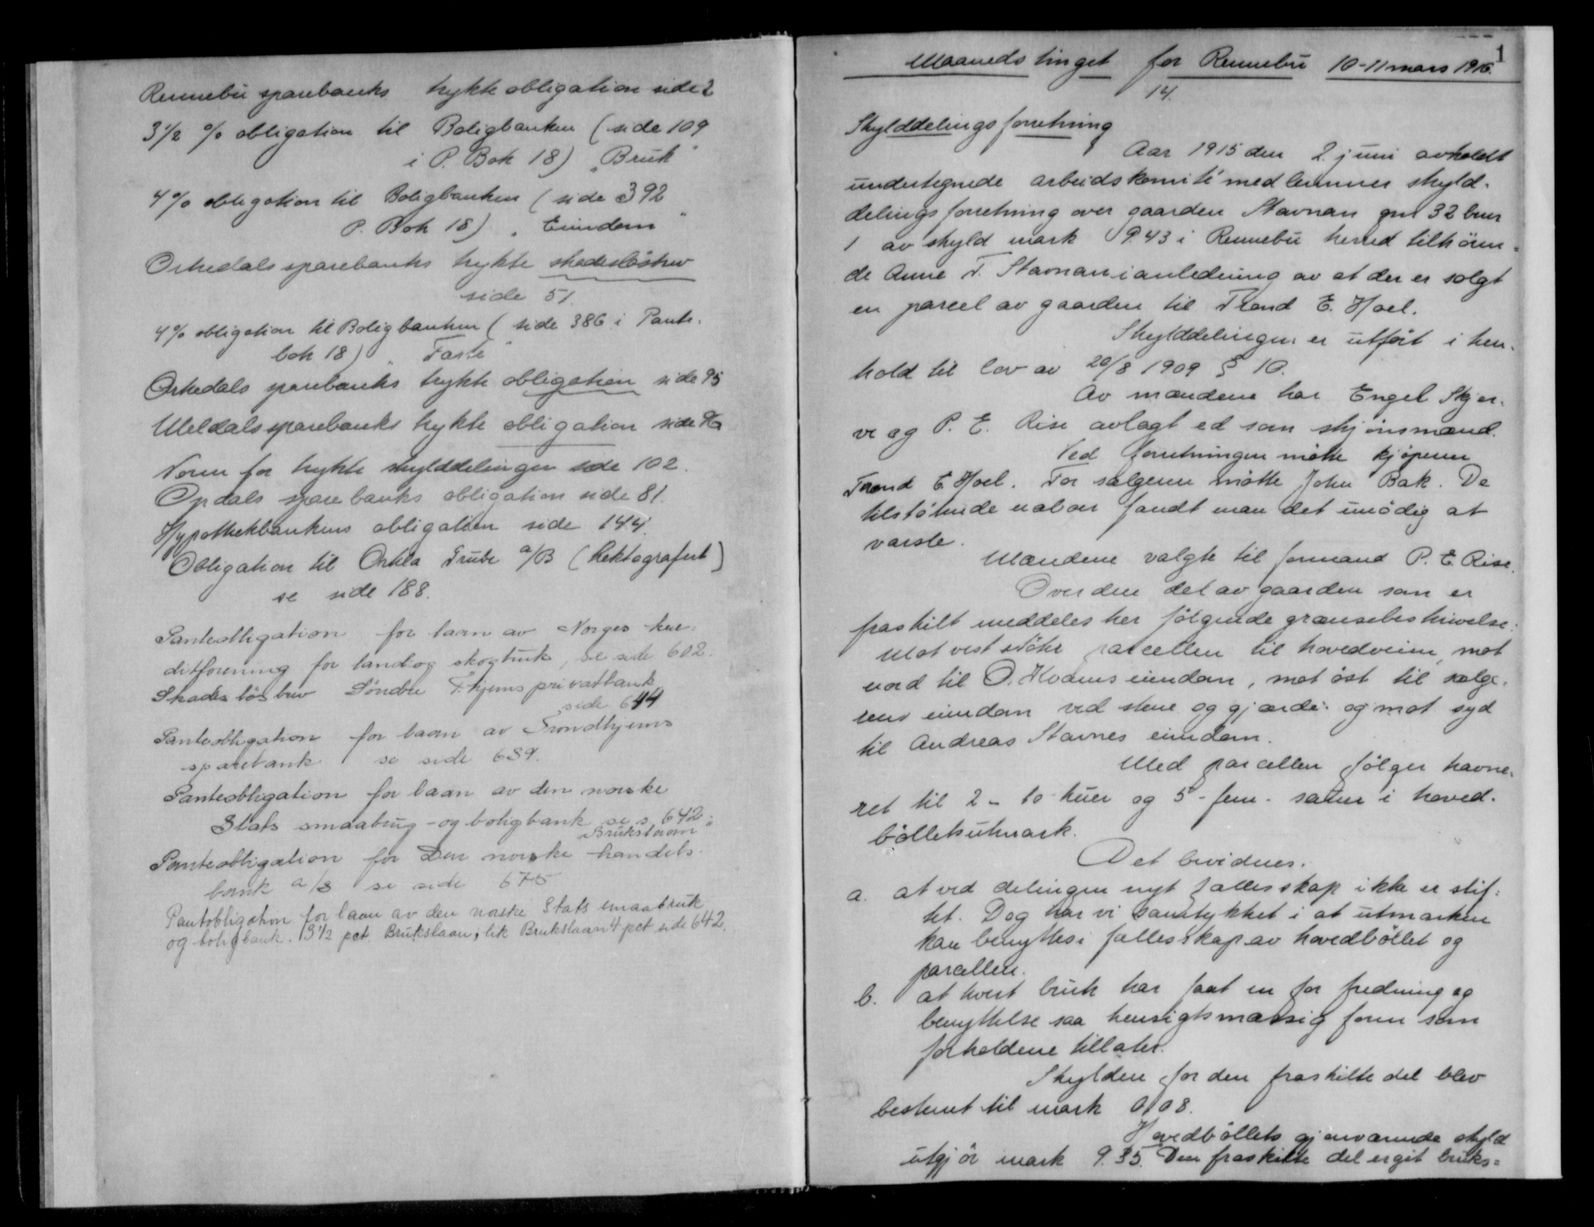 Rennebu sparebanks trykte obligation side 2
3 1/2 % obligation til Boligbanken (side 109
i P. Bok 18) "Bruk"
4 % obligation til Boligbanken (side 392
P. Bok 18) "Eiendom"
Orkedals sparebanks trykte skadesløsbrev
side 51.
4 % obligation til Boligbanken (side 386 i Pante-
bok 18) "Faste"
Orkedals sparebanks trykte obligation side 95
Meldals sparebanks trykte obligation side
Norm for trykte skylddelinger side 102.
Opdals sparebanks obligation side 81.
Hypothekbankens obligation side 144.
Obligation til Orkla Grube A/B (hektografert)
se side 188.
Panteobligation for laan av Norges kre-
ditforening for land og skogbruk, se side 602.
Skadesløsbrev Søndre T.hjems privatbank
side 644
Panteobligation for laan av Trondhjems
sparebank se side 689.
Panteobligation for laan av den norske
Stats smaabruk- og boligbank se s. 642:
Brukslaan
Panteobligation for Den norske handels-
bank a/s se side 675
Pantobligation for laan av den norske Stats smaabruk
og boligbank. 3 1/2 pct Brukslaan, lik Brukslaan 4 pct side 642.
1
Maanedstinget for Rennebu 10-11 mars 1916.
14.
Skylddelingsforretning
Aar 1915 den 2. juni avholdt
undertegnede arbeidskomitémedlemmer skyld-
delingsforretning over gaarden Stavnan gnr 32 bnr
1 av skyld mark 9.43 i Rennebu herred tilhören-
de Anne T. Stavnan i anledning av at der er solgt
en parcel av gaarden til Trond E. Hoel.
Skylddelingen er utført i hen-
hold til lov av 20/8 1909 § 10.
Av mændene har Engel Skjer-
ve og P. E. Rise avlagt ed som skjønsmænd.
Ved forretningen møtte kjøperen
Trond E. Hoel. For sælgeren møtte John Bak. De
tilstøtende naboer fandt man det unødig at
varsle.
Mændene valgte til formand P. E. Rise.
Over den del av gaarden som er
fraskilt meddeles her følgende grænsebeskrivelse:
Mot vest støter parcellen til hovedveien, mot
nord til O. Modens eiendom, mot øst til sælge-
rens eiendom ved stene og gjærde: og mot syd
til Andreas Stavnes eiendom.
Med parcellen følger havne-
ret til 2 - to - kuer og 5 - fem - sauer i hoved-
bøllets utmark.
Det bevidnes:
a. at ved delingen nyt fællesskap ikke er stif-
tet. Dog har vi samtykket i at utmarken
kan benyttes i fællesskap av hovedbøllet og
parcellen.
b. at hvert bruk har faat en for fredning og
benyttelse saa hensigtsmæssig form som
forholdene tillater.
Skylden for den fraskilte del blev
bestemt til mark 0.08.
Hovedbøllets gjenværende skyld
utgjör mark 9.35. Den fraskilte del er git bruks-